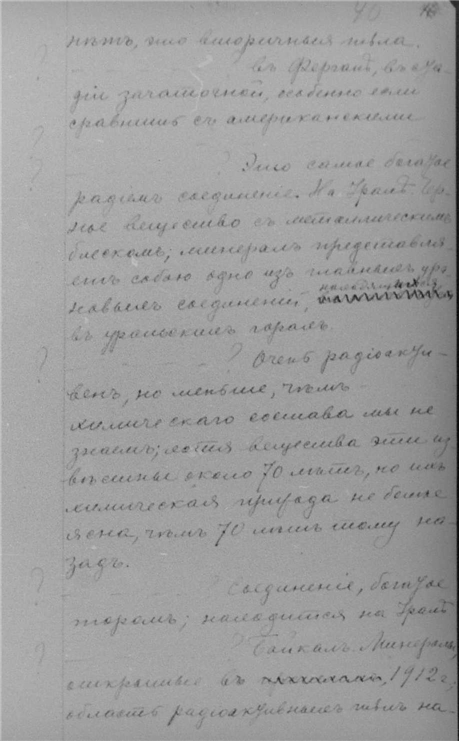 40
нѣтъ, это вторичныя тѣла.
? въ Ферганѣ, въ ста-
діи зачаточной, особенно если
сравнить съ американскими
?
? Это самое богатое
радіемъ соединеніе. На Уралѣ. Чер-
ное вещество съ металлическимъ
блескомъ; минералъ представля-
етъ собою одно изъ главныхъ ура-
новыхъ соединеній, находящихся
въ уральскихъ горахъ.
? ? Очень радіоакти-
венъ, но меньше, чѣмъ
химическаго состава мы не
знаемъ; хотя вещества эти из-
вѣстны около 70 лѣтъ, но ихъ
химическая природа не более
ясна, чѣмъ 70 лѣтъ тому на-
задъ.
? Соединеніе, богатое
торомъ; находится на Уралѣ
? ? Байкалъ. Минералы,
открытые въ 1912 г.;
область радіоактивныхъ тѣлъ на-